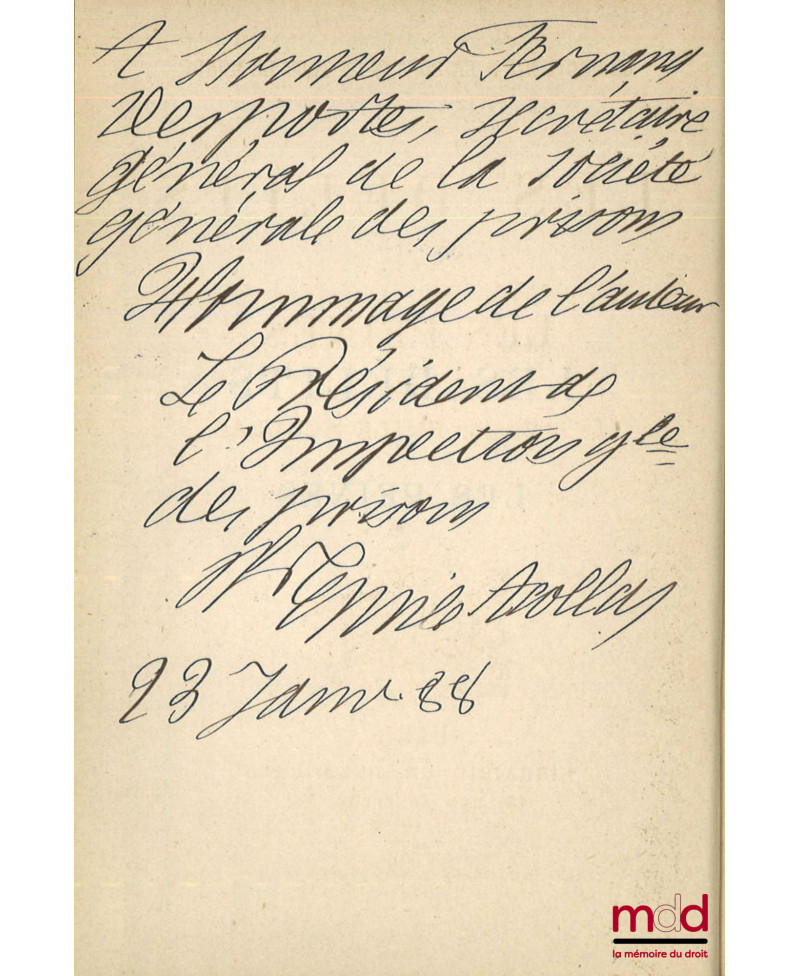 A Monsieur Fernand
Desportes, secrétaire
général de la Société
générale des prisons
Hommage de l'auteur
Le Président de
l'Inspection gle
des prisons
Emile Acollas
23 Janv. 88
mdd
la mémoire du droit